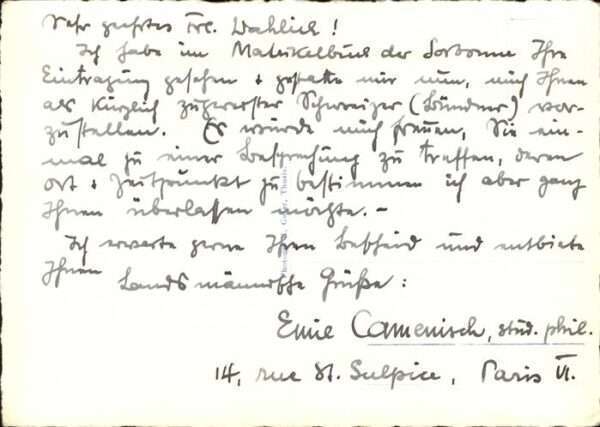 Sehr geehrtes Frl. Wahlich!
Ich habe im Matrikelbuch der Sorbonne Ihre
Eintragung gesehen + gestatte mir nun, mich Ihnen
als kürzlich zugereister Schweizer (Bündner) vor-
zustellen. Es würde mich freuen, Sie ein-
mal zu einer Besprechung zu treffen, deren
Ort + Zeitpunkt zu bestimmen ich aber ganz
Ihnen überlassen möchte. -
Ich erwarte gerne Ihren Bescheid und entbiete
Ihnen Landsmännische Grüße:
Camenisch, stud. phil.
14, rue St. Sulpice, Paris VI.